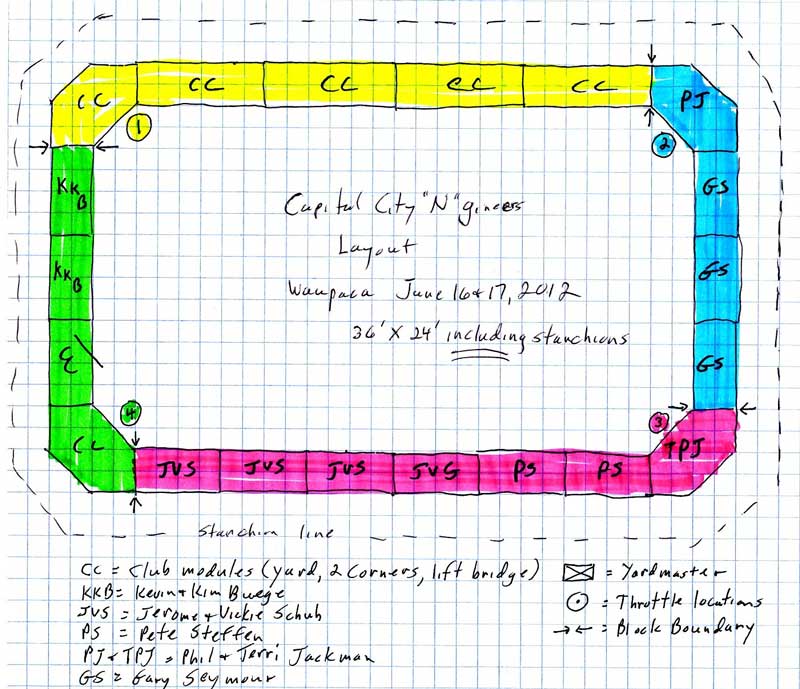 CC CC CC CC CC PJ
1
2
KKB
GS
Capital City "N"gineers
Layout
Waupaca June 16 & 17, 2012
36' X 24' including stanchions
KKB
GS
GS
4
3
CC
TPJ
JVS JVS JVS JVS PS PS
Stanchion line
CC = Club modules (yard, 2 Corners, lift bridge)
KKB = Kevin & Kim Buege
JVS = Jerome & Vickie Schuh
PS = Pete Steffen
PJ & TPJ = Phil & Terri Jackman
GS = Gary Seymour
= Yardmaster
= Throttle locations
→← = Block Boundary